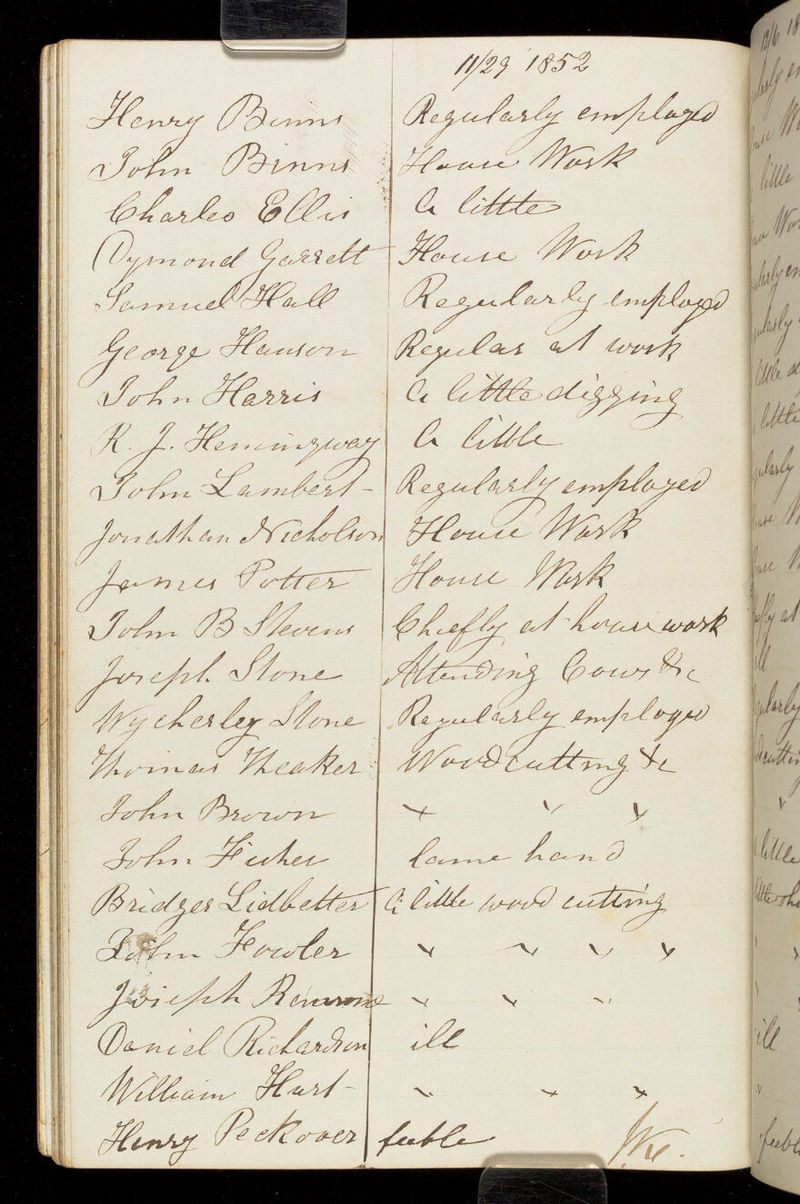 11/29 1852
Henry Binns Regularly employed
John Binns House Work
Charles Ellis A little
Dymond Garrett House Work
Samuel Hall Regularly employed
George Hanson Regular at work
John Harris A little digging
R. J. Hemingway A little
John Lambert - Regularly employed
Jonathan Nicholson House Work
James Potter House Work
John B Stevens Chiefly at house work
Joseph Stone Attending Cows &c
Wycherley Stone Regularly employed
Thomas Theaker Wood cutting &c
John Brown " " "
John Fisher lame hand
Bridges Lidbetter A little wood cutting
John Fowler " " " "
Joseph " " "
Daniel Richardson ill
William Hurt - " " "
Henry Peckover feeble